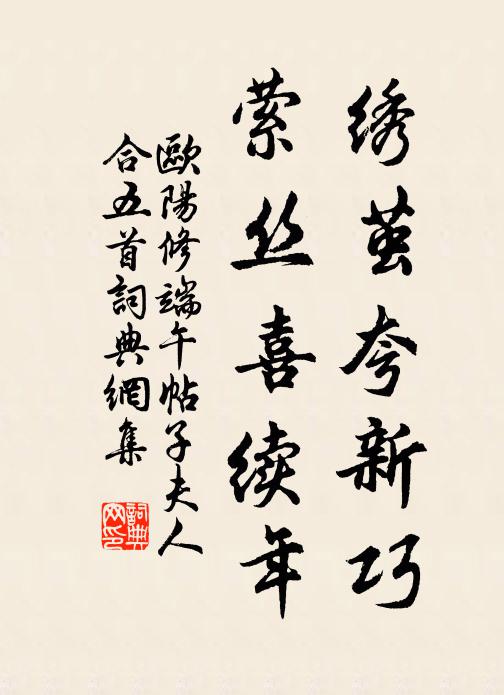 绣茧夸新巧
萦丝喜续年
歐陽修端午帖子夫人
合五首詞典網集
詞典
网印